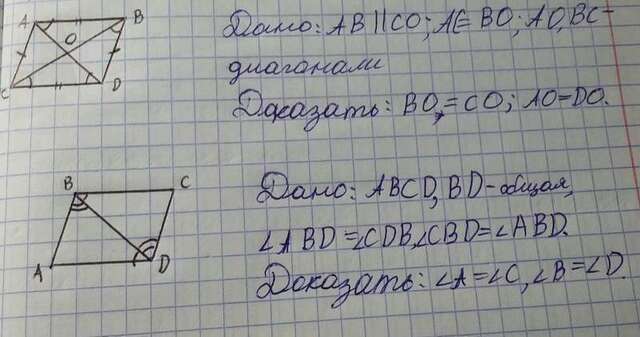 A B
O
C D
Дано: AB || CD; AC = BD; AD, BC -
диагонали
Доказать: BO = CO; AO = DO.
B C
A D
Дано: ABCD, BD - общая,
∠ABD = ∠CDB, ∠CBD = ∠ABD.
Доказать: ∠A = ∠C, ∠B = ∠D.